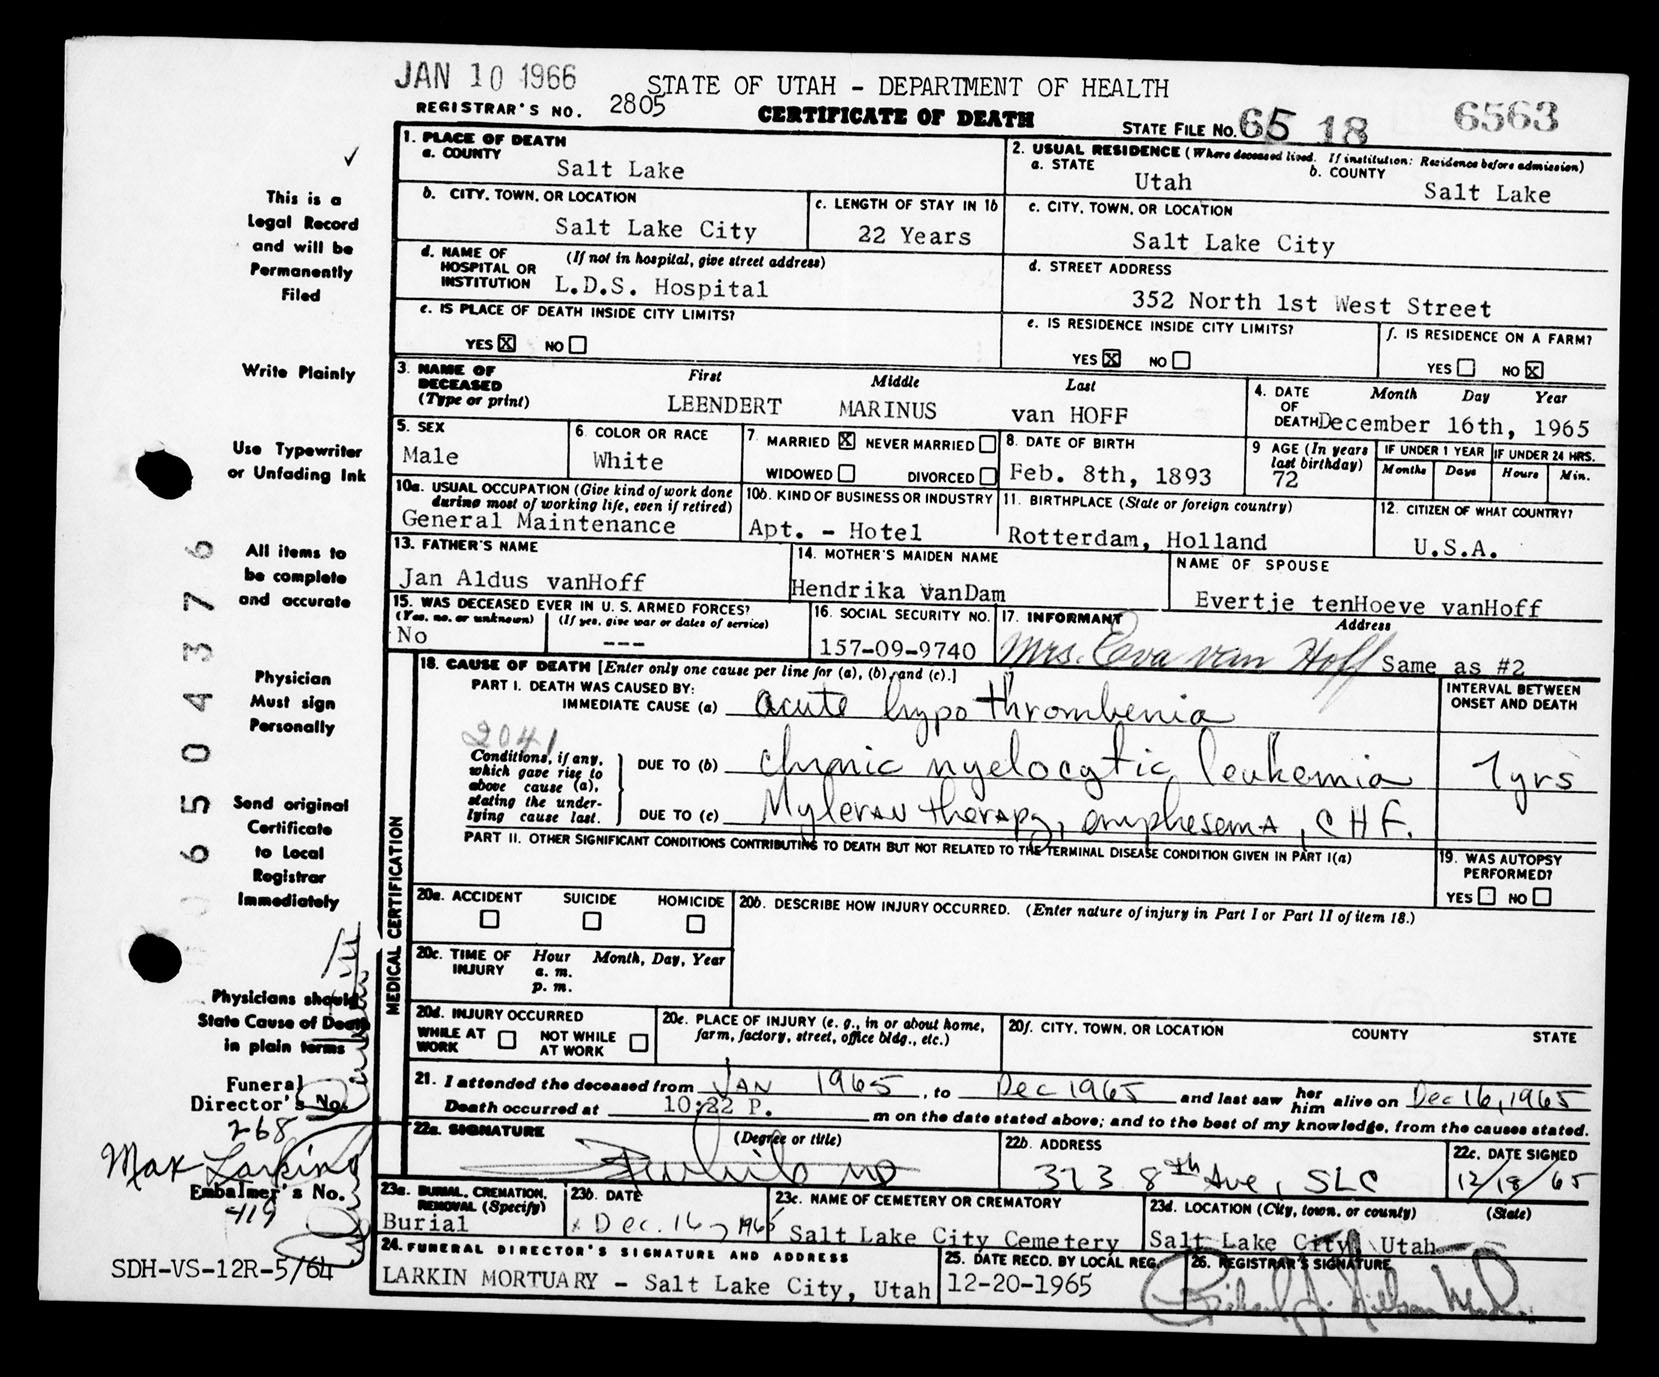 JAN 10 1966
STATE OF UTAH - DEPARTMENT OF HEALTH
REGISTRAR'S NO. 2805
CERTIFICATE OF DEATH
STATE FILE NO. 65 18 6563
✓
This is a
Legal Record
and will be
Permanently
Filed
Write Plainly
Use Typewriter
or Unfading Ink
All items to
be complete
and accurate
Physician
Must sign
Personally
Send original
Certificate
to Local
Registrar
Immediately
Physicians should
State Cause of Death
in plain terms
Funeral
Director's No.
268
Max Larkin
Embalmer's No.
419
SDH-VS-12R-5/64
06504376
1. PLACE OF DEATH
a. COUNTY
Salt Lake
2. USUAL RESIDENCE (Where deceased lived. If institution: Residence before admission)
a. STATE Utah b. COUNTY Salt Lake
b. CITY, TOWN, OR LOCATION
Salt Lake City
c. LENGTH OF STAY IN 1b
22 Years
c. CITY, TOWN, OR LOCATION
Salt Lake City
d. NAME OF HOSPITAL OR INSTITUTION (If not in hospital, give street address)
L.D.S. Hospital
d. STREET ADDRESS
352 North 1st West Street
e. IS PLACE OF DEATH INSIDE CITY LIMITS?
YES X NO
e. IS RESIDENCE INSIDE CITY LIMITS?
YES X NO
f. IS RESIDENCE ON A FARM?
YES NO X
3. NAME OF DECEASED (Type or print)
First Middle Last
LEENDERT MARINUS van HOFF
4. DATE OF DEATH Month Day Year
December 16th, 1965
5. SEX
Male
6. COLOR OR RACE
White
7. MARRIED X NEVER MARRIED
WIDOWED DIVORCED
8. DATE OF BIRTH
Feb. 8th, 1893
9 AGE (In years last birthday)
72
IF UNDER 1 YEAR
Months Days
IF UNDER 24 HRS.
Hours Min.
10a. USUAL OCCUPATION (Give kind of work done during most of working life, even if retired)
General Maintenance
10b. KIND OF BUSINESS OR INDUSTRY
Apt. - Hotel
11. BIRTHPLACE (State or foreign country)
Rotterdam, Holland
12. CITIZEN OF WHAT COUNTRY?
U.S.A.
13. FATHER'S NAME
Jan Aldus vanHoff
14. MOTHER'S MAIDEN NAME
Hendrika VanDam
NAME OF SPOUSE
Evertje tenHoeve vanHoff
15. WAS DECEASED EVER IN U. S. ARMED FORCES?
(Yes, no. or unknown) (If yes, give war or dates of service)
No ---
16. SOCIAL SECURITY NO.
157-09-9740
17. INFORMANT Address
Mrs. Eva van Hoff Same as #2
MEDICAL CERTIFICATION
18. CAUSE OF DEATH [Enter only one cause per line for (a), (b), and (c).]
INTERVAL BETWEEN ONSET AND DEATH
PART I. DEATH WAS CAUSED BY:
IMMEDIATE CAUSE (a) acute hypo thrombenia
2041
Conditions, if any, which gave rise to above cause (a), stating the underlying cause last.
DUE TO (b) chronic myelocytic leukemia 7 yrs
DUE TO (c) Myleran therapy, emphesema, CHF.
PART II. OTHER SIGNIFICANT CONDITIONS CONTRIBUTING TO DEATH BUT NOT RELATED TO THE TERMINAL DISEASE CONDITION GIVEN IN PART I(a)
19. WAS AUTOPSY PERFORMED?
YES NO
20a. ACCIDENT SUICIDE HOMICIDE
20b. DESCRIBE HOW INJURY OCCURRED. (Enter nature of injury in Part I or Part II of item 18.)
20c. TIME OF INJURY Hour Month, Day, Year
a. m.
p. m.
20d. INJURY OCCURRED
WHILE AT WORK NOT WHILE AT WORK
20e. PLACE OF INJURY (e. g., in or about home, farm, factory, street, office bldg., etc.)
20f. CITY, TOWN, OR LOCATION COUNTY STATE
21. I attended the deceased from JAN 1965, to Dec 1965 and last saw her him alive on Dec 16, 1965
Death occurred at 10:22 P. m on the date stated above; and to the best of my knowledge, from the causes stated.
22a. SIGNATURE (Degree or title)
MD
22b. ADDRESS
373 8th Ave, SLC
22c. DATE SIGNED
12/18/65
23a. BURIAL, CREMATION, REMOVAL (Specify)
Burial
23b. DATE
x Dec. 16, 1965
23c. NAME OF CEMETERY OR CREMATORY
Salt Lake City Cemetery
23d. LOCATION (City, town, or county) (State)
Salt Lake City, Utah
24. FUNERAL DIRECTOR'S SIGNATURE AND ADDRESS
LARKIN MORTUARY - Salt Lake City, Utah
25. DATE RECD. BY LOCAL REG.
12-20-1965
26. REGISTRAR'S SIGNATURE